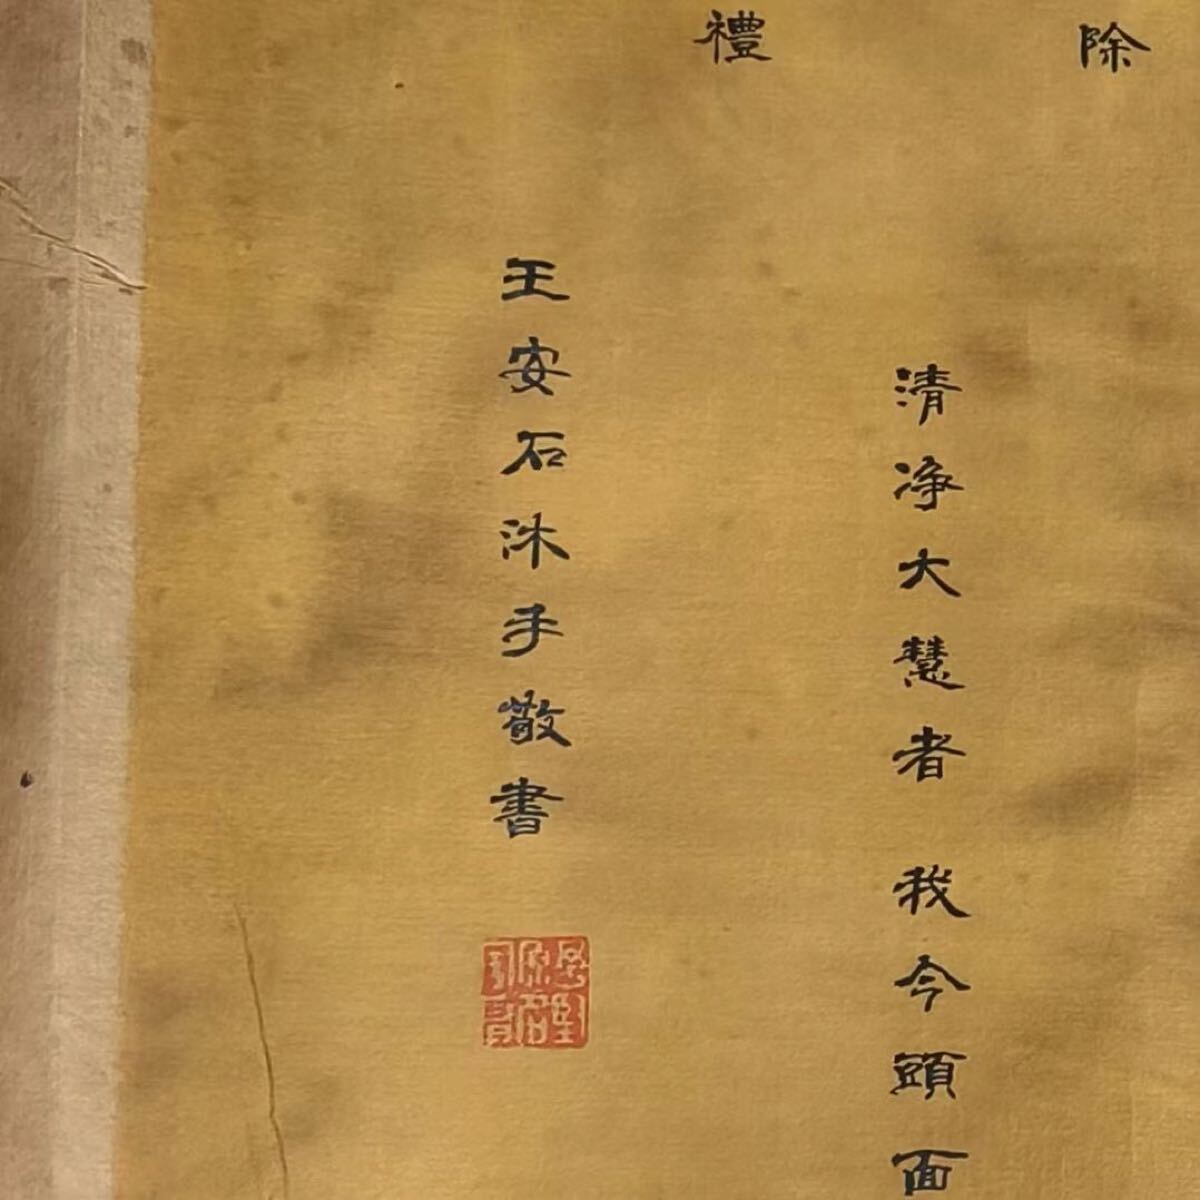 除
清净大慧者 我今頭面
禮
王安石沐手敬書